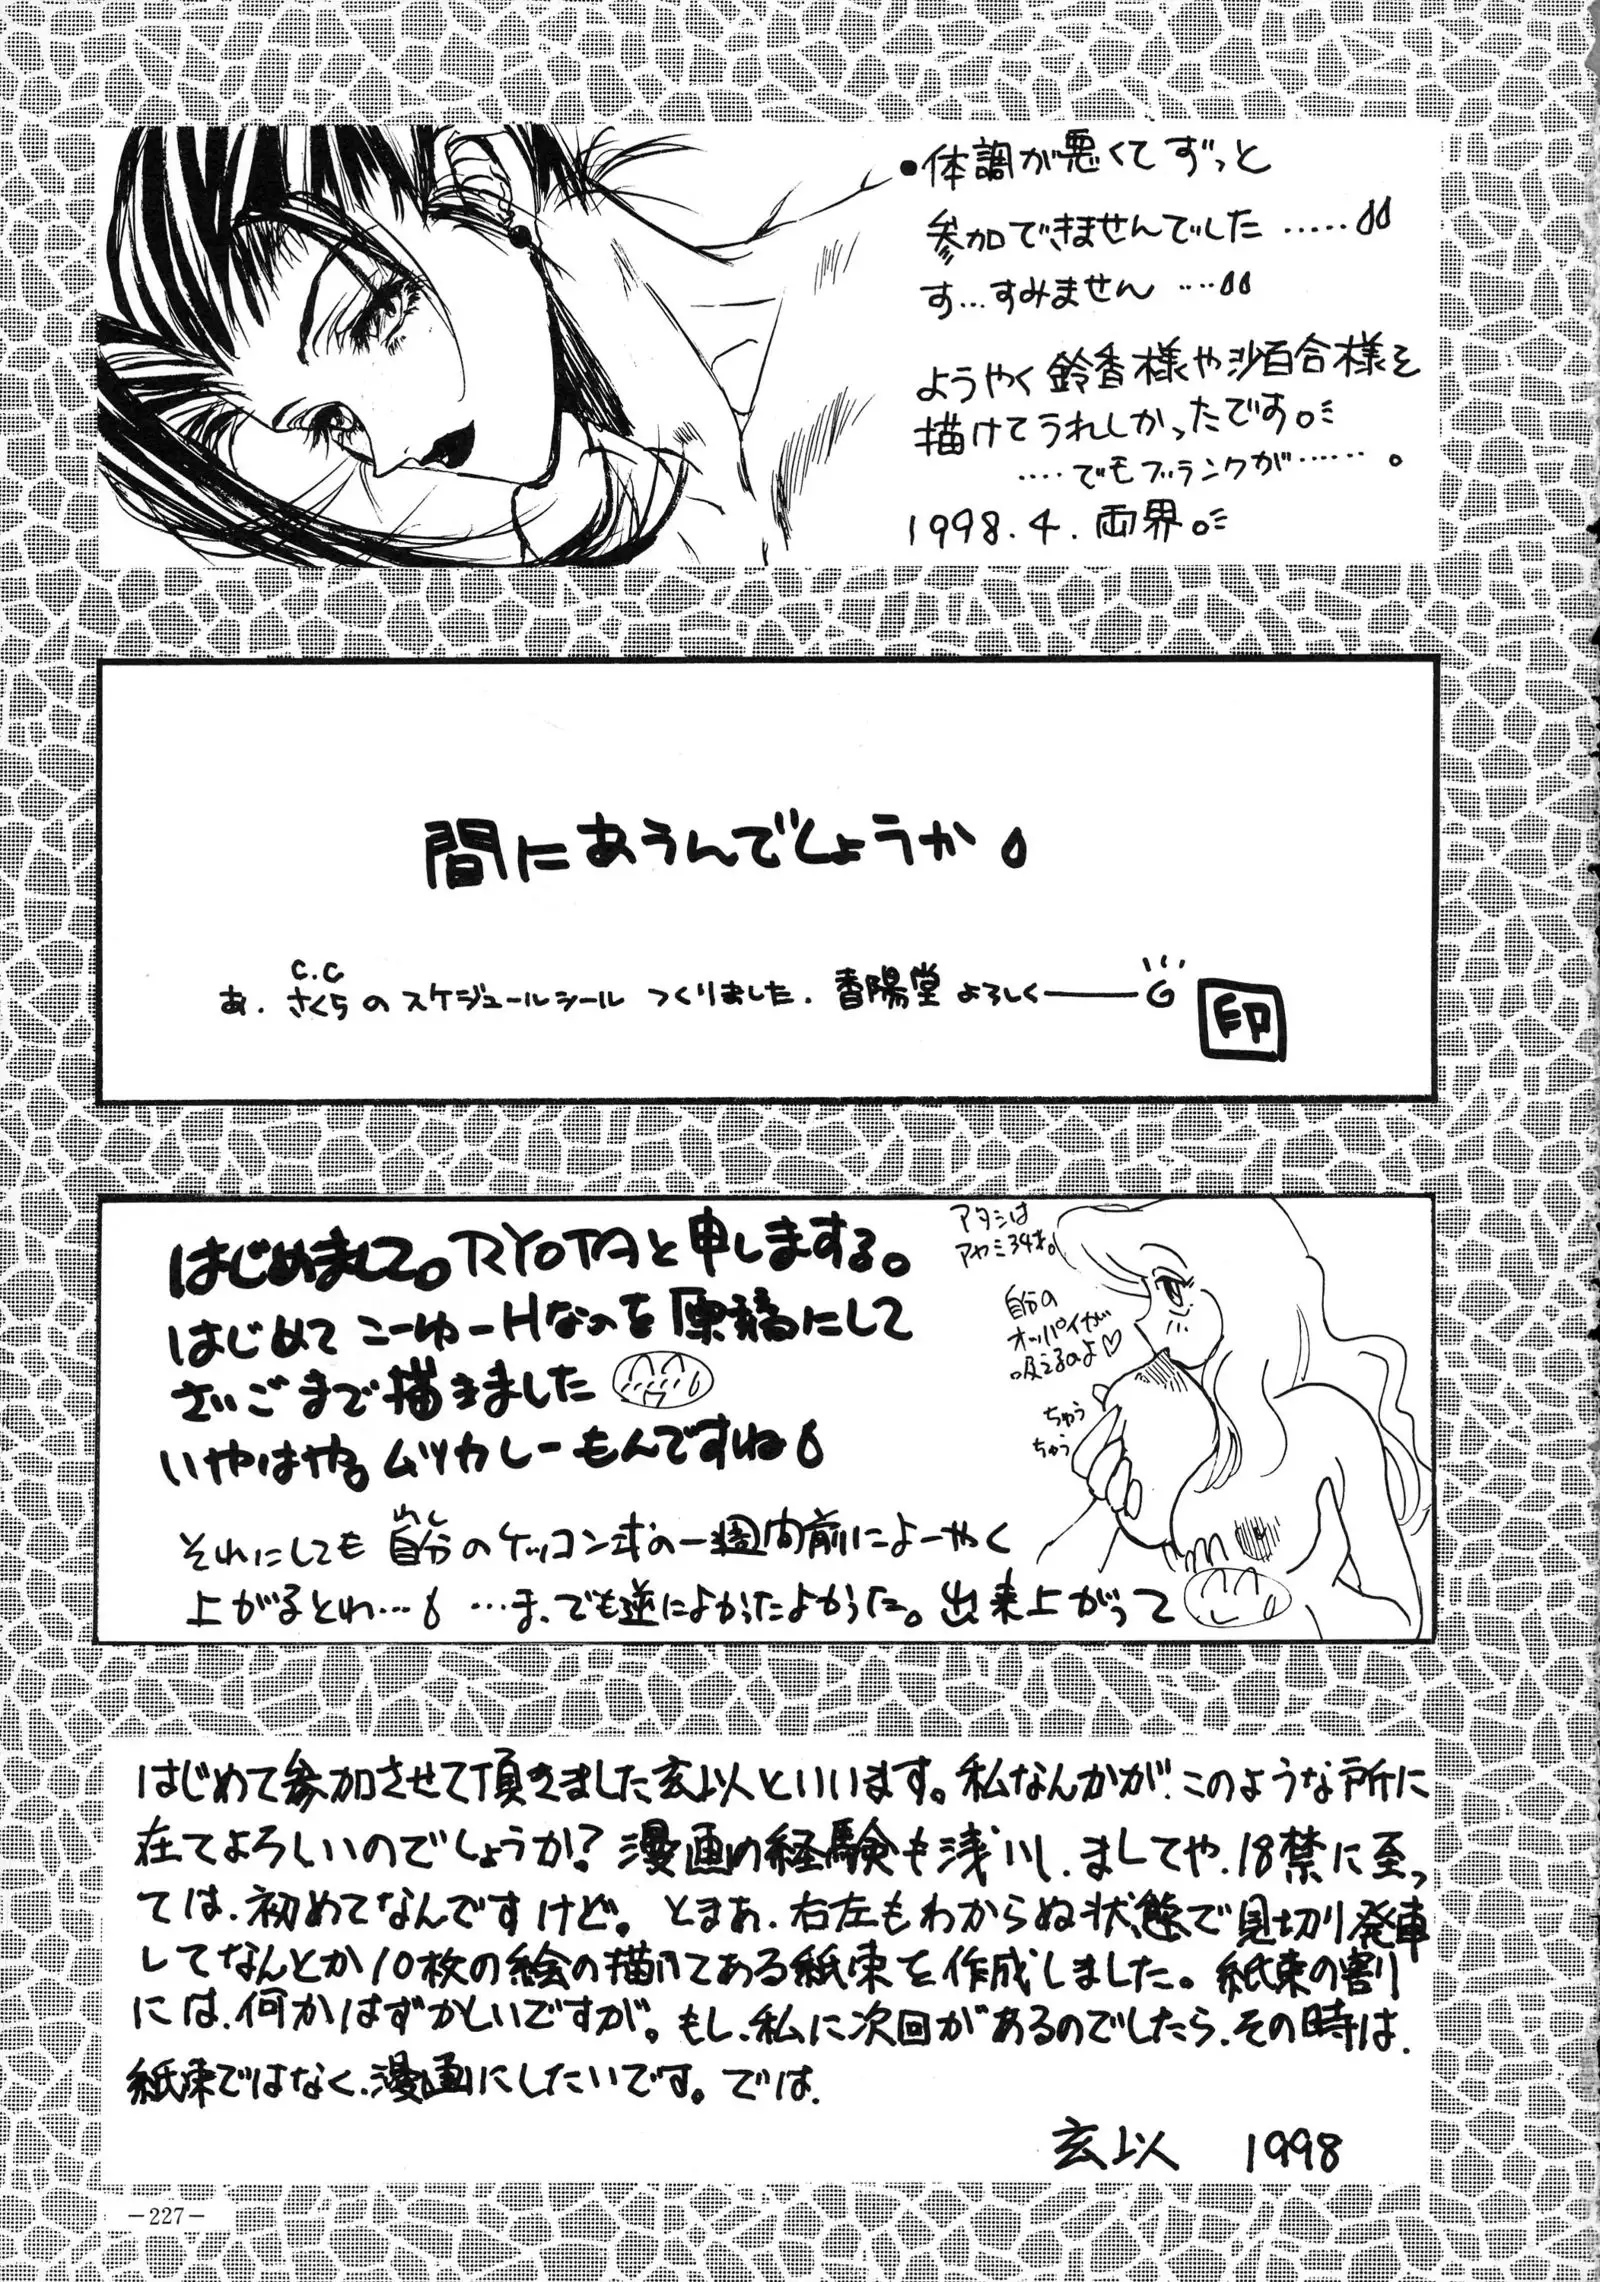 •体調が悪くてずっと
参加できませんでした‥‥‥
す…すみません‥‥
ようやく鈴香様や沙百合様を
描けてうれしかったです。
‥‥でもブランクが‥‥‥。
1998.4.両界。
間にあうんでしょうか。
C.C
あ.さくらのスケジュールシール つくりました.香陽堂よろしく――
印
はじめまして。RYOTAと申しまする。
はじめてこーゆーHなのを原稿にして
さいごまで描きました
いやはや。ムツカしーもんですね
それにしても自分のケッコン式の一週間前によーやく
上がるとわ…。…ま、でも逆によかったよかった。出来上がって
アタシは
アヤミ34才。
自分の
オッパイが
吸えるのよ♡
ちゅう
ちゅう
はじめて参加させて頂きました玄以といいます。私なんかが、このような所に
在てよろしいのでしょうか?漫画の経験も浅いし、ましてや、18禁に至っ
ては、初めてなんですけど。とまあ、右左もわからぬ状態で見切り発車
してなんとか10枚の絵の描けてある紙束を作成しました。紙束の割り
には、何かはずかしいですが。もし、私に次回があるのでしたら、その時は、
紙束ではなく、漫画にしたいです。では.
玄以 1998
－227－